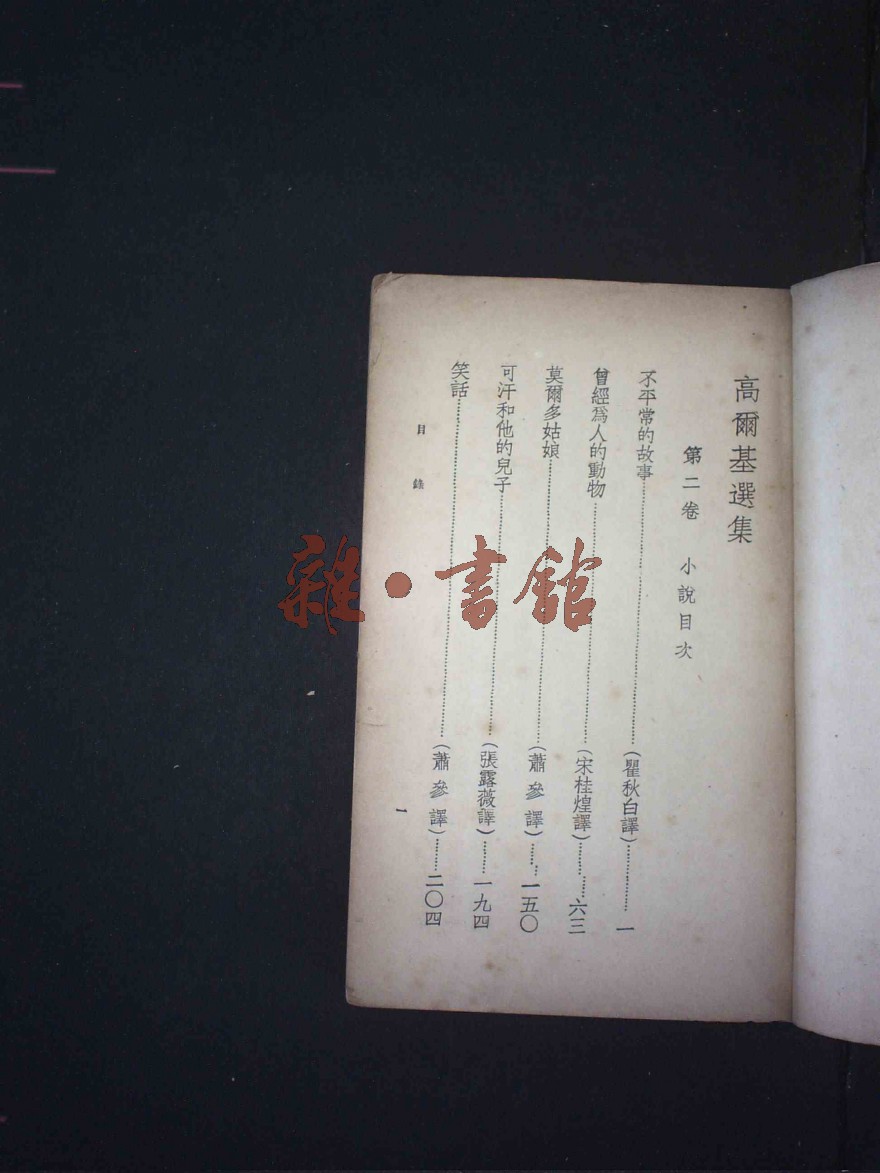 高爾基選集
第二卷 小說目次
不平常的故事……(瞿秋白譯)……一
曾經爲人的動物……(宋桂煌譯)……六三
莫爾多姑娘……(蕭參譯)……一五〇
可汗和他的兒子……(張露薇譯)……一九四
笑話……(蕭參譯)……二〇四
目錄
一
雜·書館